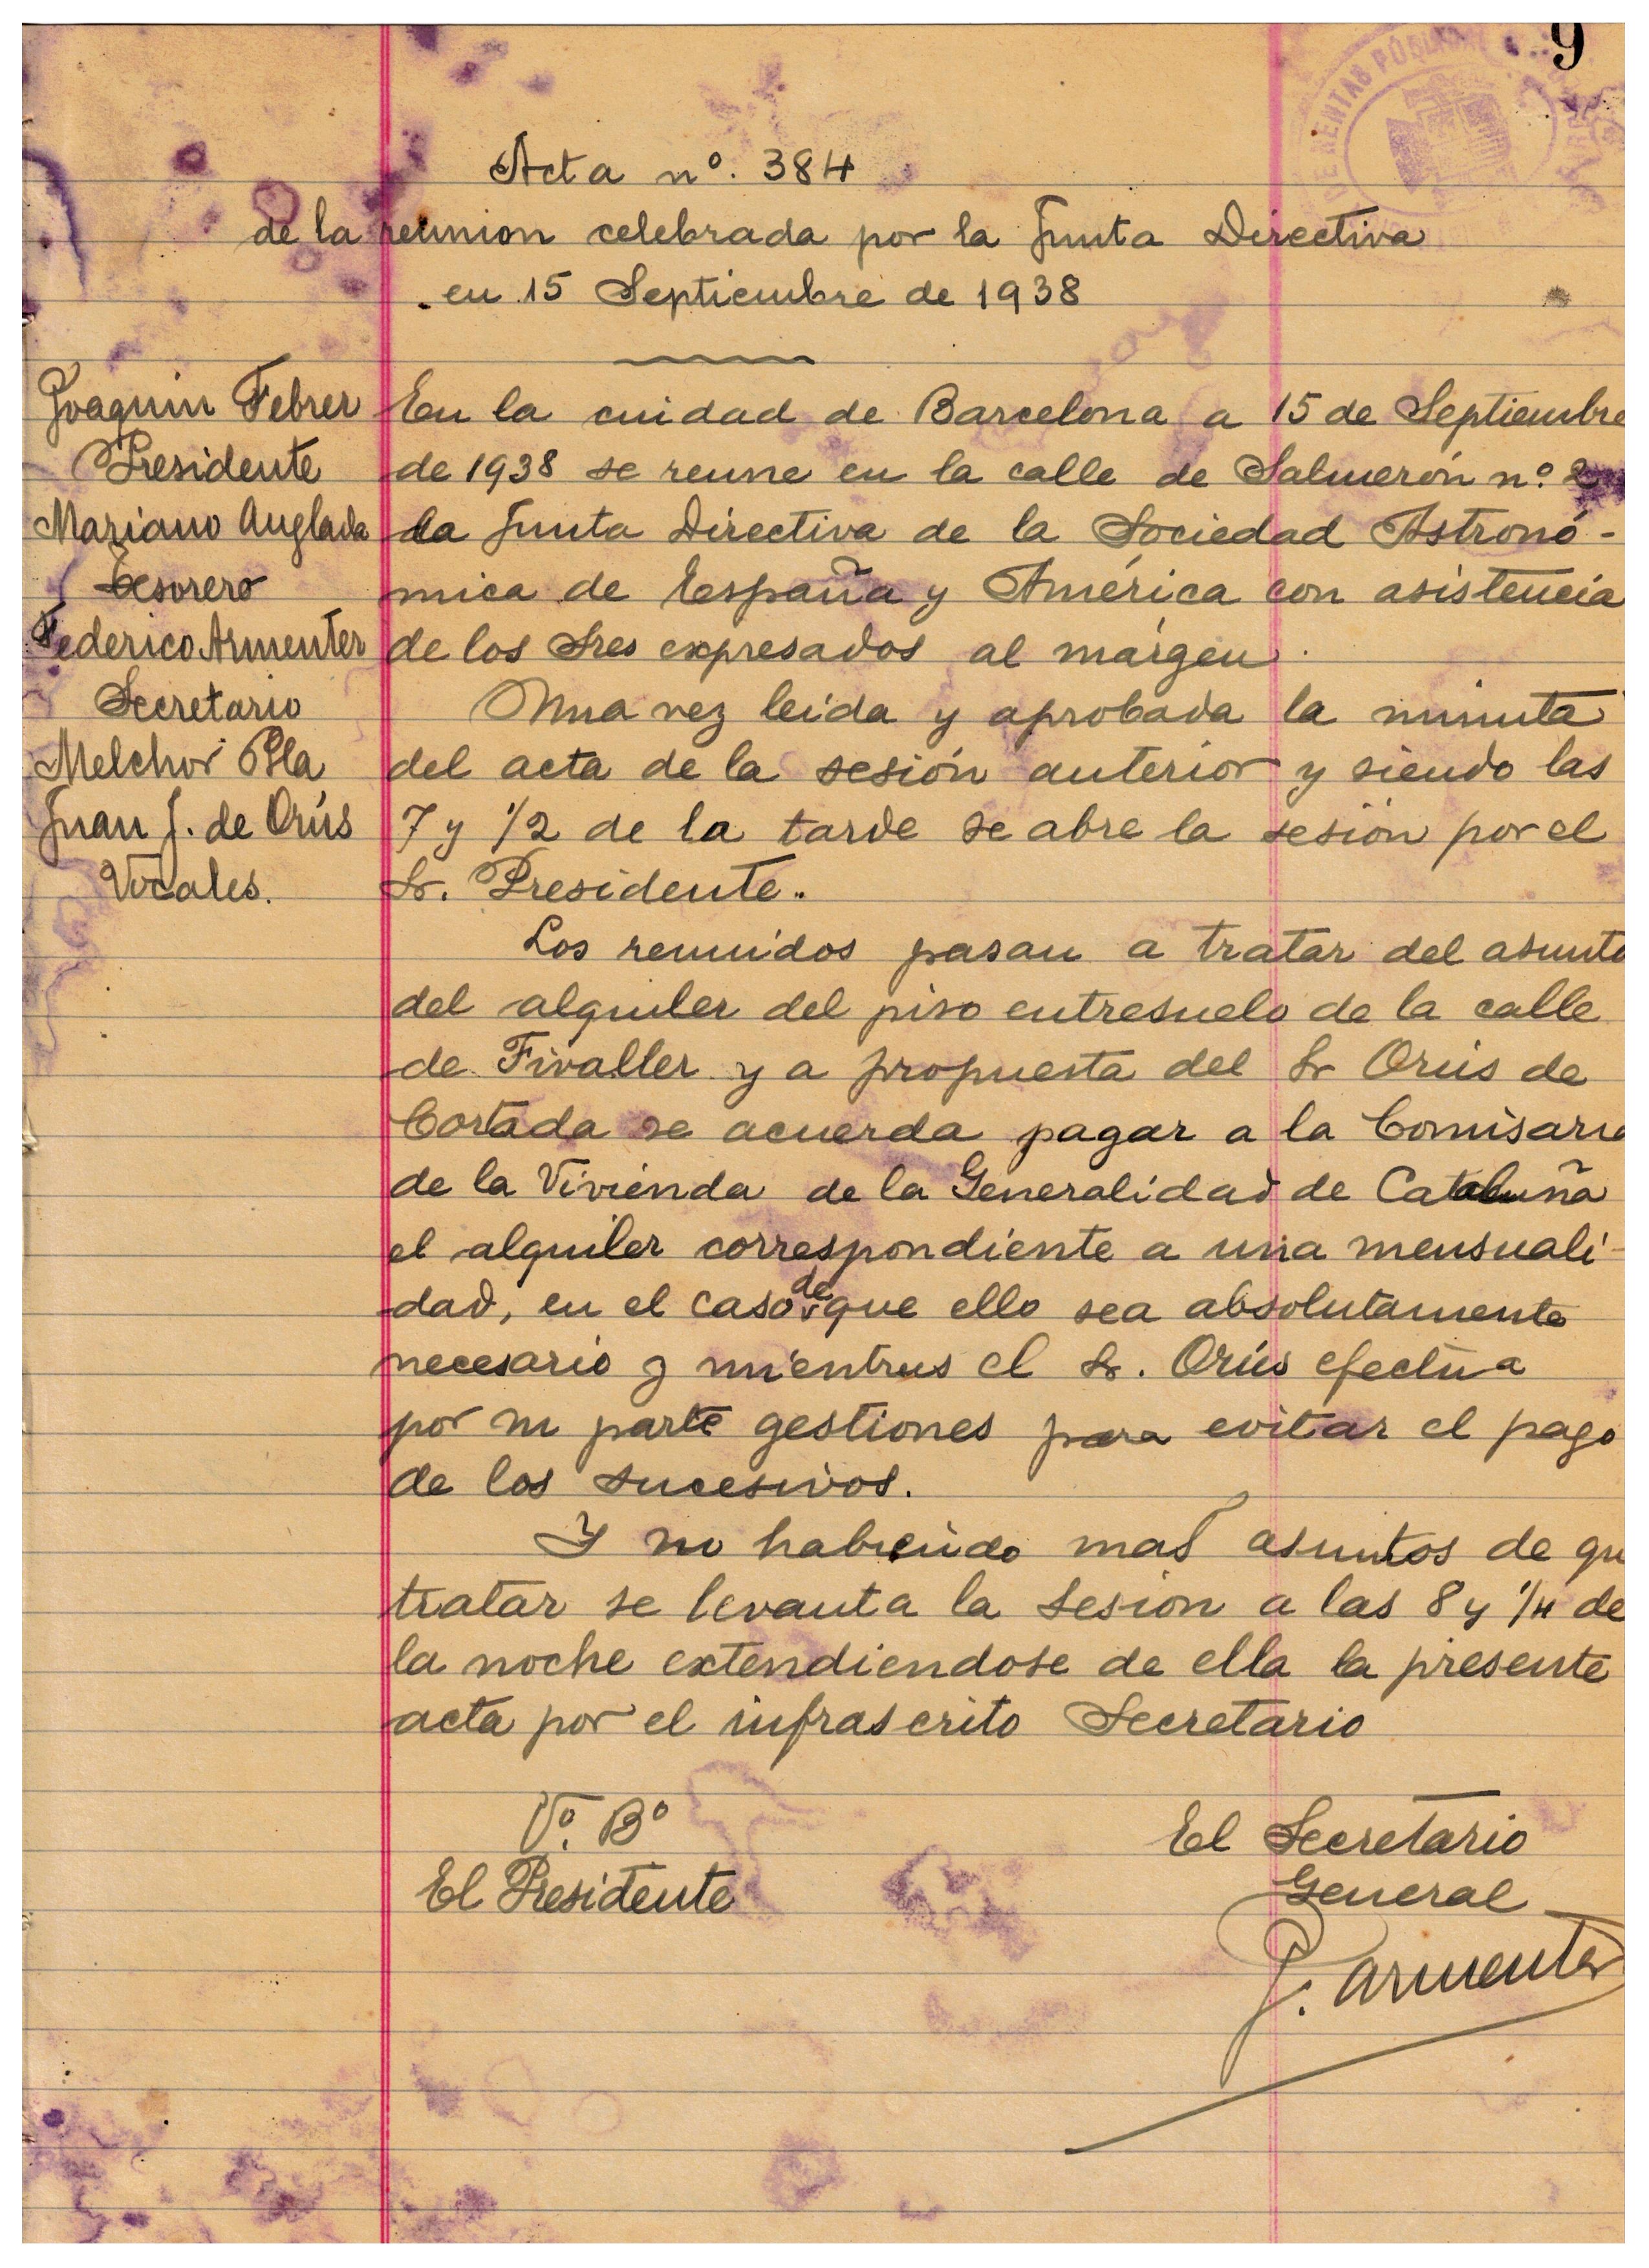 9
DE RENTAS PÚBLICAS
Acta nº. 384
de la reunion celebrada por la Junta Directiva
en 15 Septiembre de 1938
Joaquin Febrer
Presidente
Mariano Anglada
Tesorero
Federico Armenter
Secretario
Melchor Pla
Juan J. de Orús
Vocales.
En la cuidad de Barcelona a 15 de Septiembre
de 1938 se reune en la calle de Salmerón nº. 2
la Junta Directiva de la Sociedad Astronó-
mica de España y América con asistencia
de los Sres expresados al márgen.
Una vez leida y aprobada la minuta
del acta de la sesión anterior y siendo las
7 y 1/2 de la tarde se abre la sesión por el
Sr. Presidente.
Los reunidos pasan a tratar del asunto
del alquiler del piso entresuelo de la calle
de Fivaller y a propuesta del Sr Orús de
Cortada se acuerda pagar a la Comisaria
de la Vivienda de la Generalidad de Cataluña
el alquiler correspondiente a una mensuali-
dad, en el caso de que ello sea absolutamente
necesario y mientras el Sr. Orús efectúa
por su parte gestiones para evitar el pago
de los sucesivos.
Y no habiendo mas asuntos de qu
tratar se levanta la sesion a las 8 y 1/4 de
la noche extendiendose de ella la presente
acta por el infrascrito Secretario
Vº. Bº
El Presidente
El Secretario
General
F. Armenter